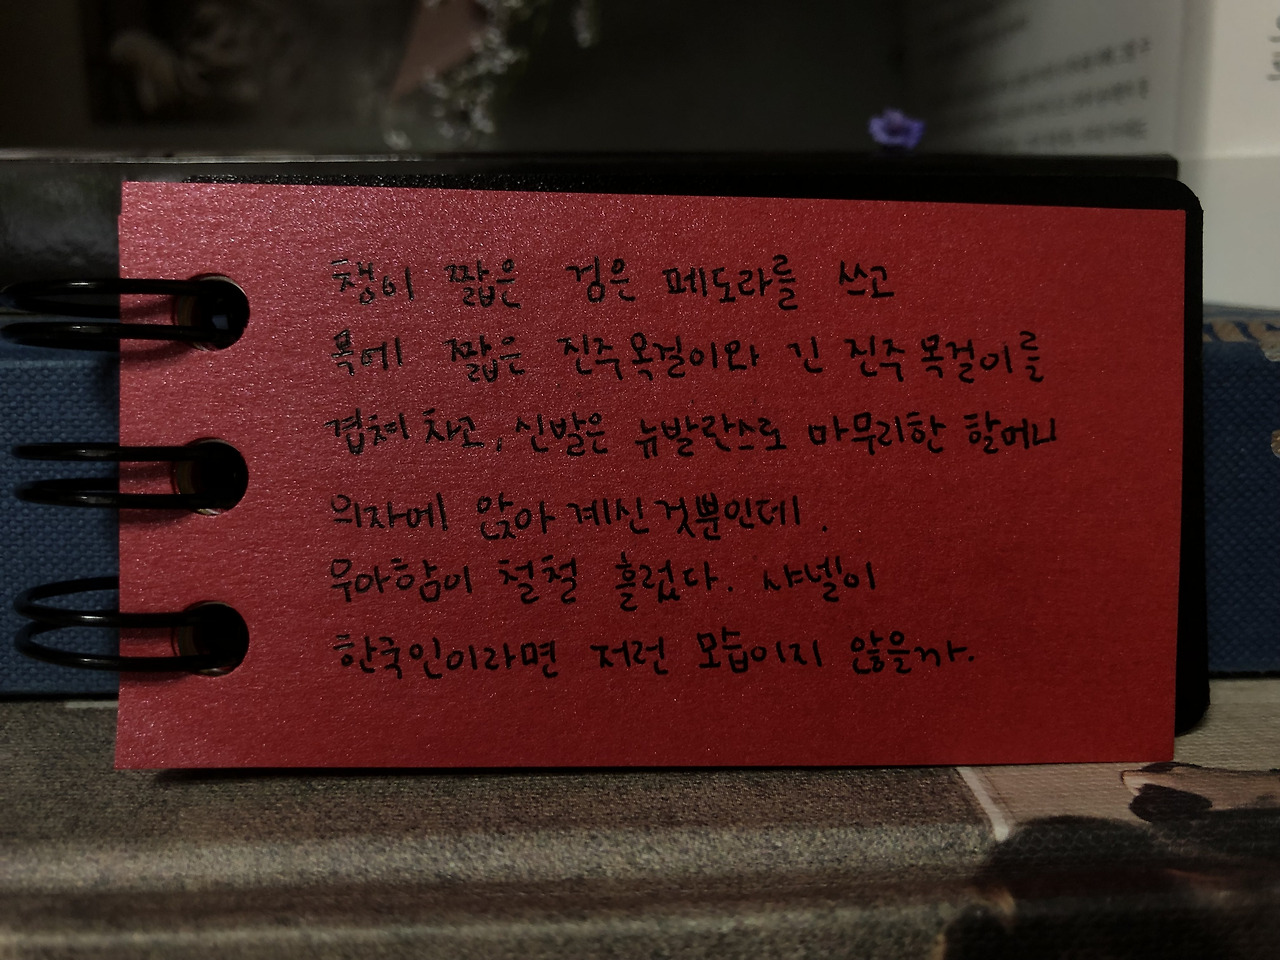 챙이 짧은 검은 페도라를 쓰고
목에 짧은 진주목걸이와 긴 진주목걸이를
겹쳐 차고, 신발은 뉴발란스로 마무리한 할머니
의자에 앉아 계신 것뿐인데.
우아함이 철철 흘렀다. 샤넬이
한국인이라면 저런 모습이지 않을까.